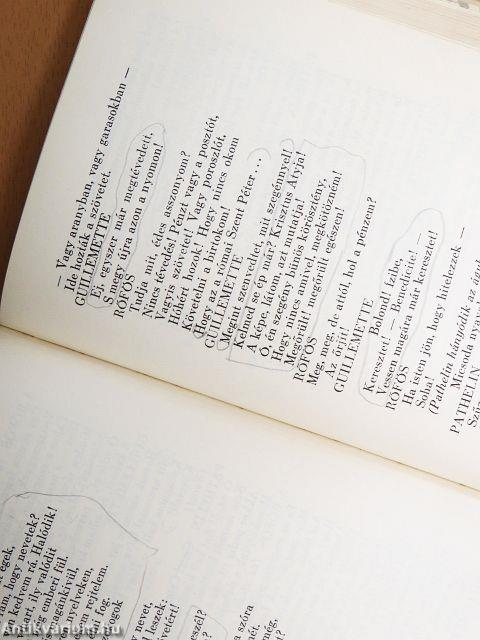 — Vagy aranyban, vagy garasokban —
Ide hozták a szövetet.
GUILLEMETTE
Ej, egyszer már megtévedett,
S megy újra azon a nyomon!
RŐFÖS
Tudja mit, édes asszonyom?
Nincs tévedés! Pénzt vagy a posztót,
Vagyis szövetit! Vagy poroszlót,
Hókért hozok! Hogy nincs okom
Követelni a birtokom!
Hogy az a római Szent Péter ...
GUILLEMETTE
Megint szenvedhet, mit szegénnyel!
Kelmed se ép már? Krisztus Atyja!
A képe, látom, azt mutatja!
Ó, én szegény bűnös körösztény,
Hogy nincs amivel, megkötözném!
Megőrült! megőrült egészen!
RŐFÖS
Meg, meg, de attól, hol a pénzem?
Az őrjít!
GUILLEMETTE
Bolond! Ízibe,
Keresztet! — Benedicite! —
Vessen magára már keresztet!
RŐFÖS
Ha isten jön, hogy hitelezzek —
Soha!
(Pathelin hánykódik az
PATHELIN
Micsoda
egek,
rám, hogy nevetek?
kedvem rá. Halódik!
Ily valódit
emberi fül.
nyelveken,
rejtelem.
fog.
nevet,
leszek:
a szóra
még,
Antikvarium.hu